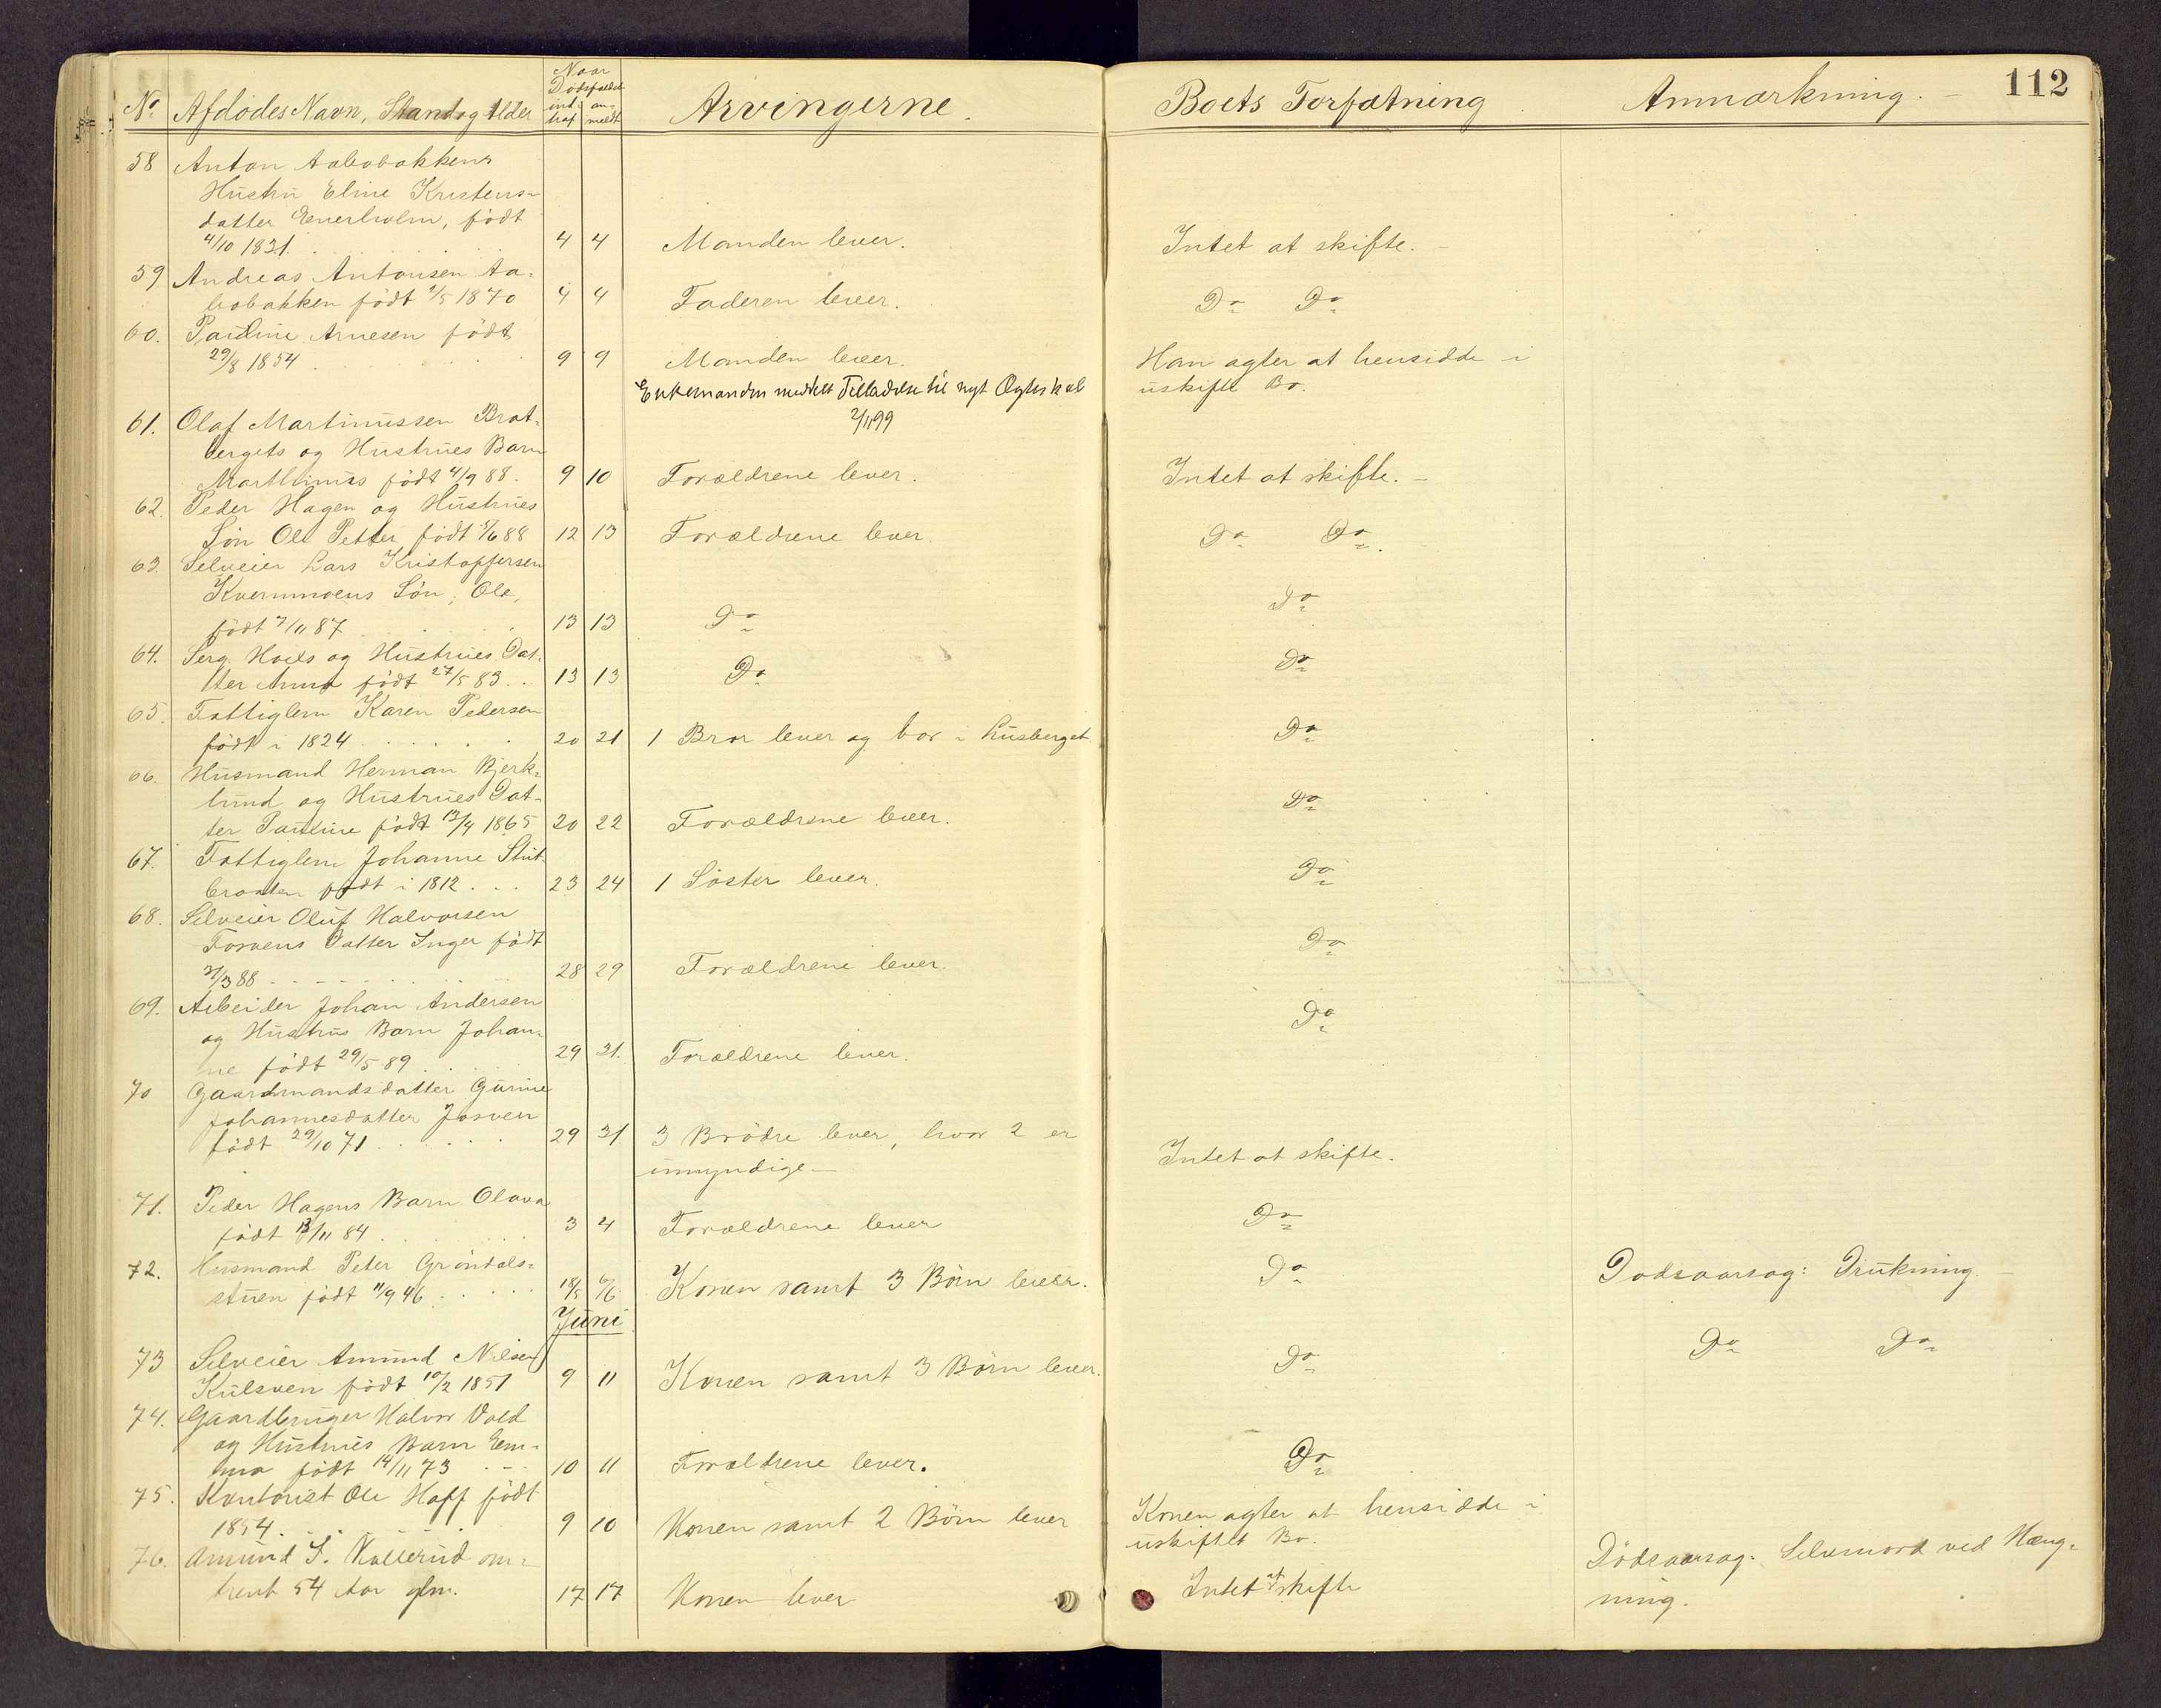 112
No. Afdødes Navn, Stand og Alder Naar Dødsfaldet indtraf anmeldt Arvingerne. Boets Forfatning Anmærkning.
58 Anton Aabobakkens
Hustru Eline Kristens-
datter Enerholm, født
4/10 1831. 4 4 Manden lever. Intet at skifte.
59 Andreas Antonsen Aa-
bobakken født 2/5 1870 4 4 Faderen lever. Do Do
60. Pauline Arnesen født
29/8 1854 9 9 Manden lever. Han agter at hensidde i
uskifte Bo.
Enkemanden meddelt Tilladelse til nyt Ægteskab
2/11 99
61. Olaf Martinussen Brat-
bergets og Hustrues Barn
Marthinus født 4/9 88. 9 10 Forældrene lever. Intet at skifte.
62. Peder Hagen og Hustrues
Søn Ole Petter født 5/6 88 12 13 Forældrene lever. Do Do
63. Selveier Lars Kristoffersen
Kvernmoens Søn, Ole,
født 7/11 87 13 13 Do Do
64. Serg. Hoels og Hustrues Dat-
ter Anna født 27/5 83 13 13 Do Do
65. Fattiglem Karen Pedersen
født i 1824 20 21 1 Bror lever og bor i Lusberget Do
66. Husmand Herman Bjerk-
lund og Hustrues Dat-
ter Pauline født 13/4 1865 20 22 Forældrene lever. Do
67. Fattiglem Johanne Stut-
braaten født i 1812 23 24 1 Søster lever. Do
68. Selveier Oluf Halvorsen
Fosvens Datter Inger født
21/3 88 28 29 Forældrene lever. Do
69. Arbeider Johan Andersen
og Hustrus Barn Johan-
ne født 29/5 89 29 31. Forældrene lever. Do
70 Gaardmandsdatter Gurine
Johannesdatter Josven
født 29/10 71 29 31 3 Brødre lever, hvor 2 er
umyndige Intet at skifte.
71. Peder Hagens Barn Olava
født 13/11 84 3 4 Forældrene lever Do
72. Husmand Peter Grøndals-
stuen født 11/9 46 18/5 6/6 Konen samt 3 Børn lever. Do Dødsaarsag: Drukning.
Juni
73 Selveier Amund Nilsen
Kulsven født 10/2 1851 9 11 Konen samt 3 Børn lever. Do Do Do
74. Gaardbruger Halvor Vold
og Hustrues Barn Em-
ma født 14/11 73 10 11 Forældrene lever. Do
75. Kontorist Ole Hoff født
1854. 9 10 Konen samt 2 Børn lever Konen agter at hensidde i
uskiftet Bo.
76. Amund S. Kallerud om-
trent 54 Aar glm. 17 17 Konen lever Intet at skifte Dødsaarsag: Selvmord ved Hæng-
ning.